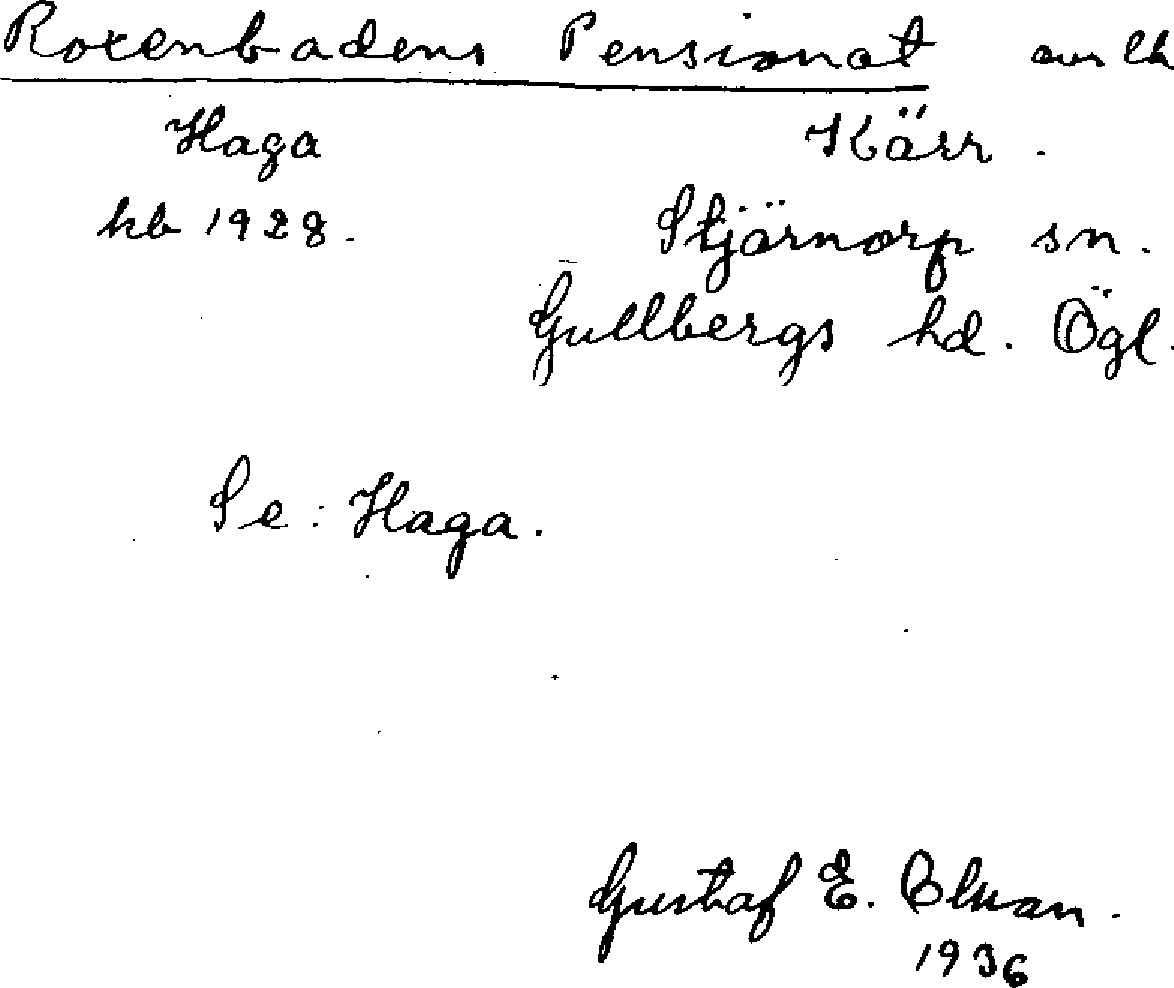 Roxenbadens Pensionat
Haga Kärr.
kb 1928. Stjärnorp sn.
Gullbergs hd. Ögl.
Se: Haga.
Gustaf E.
1936